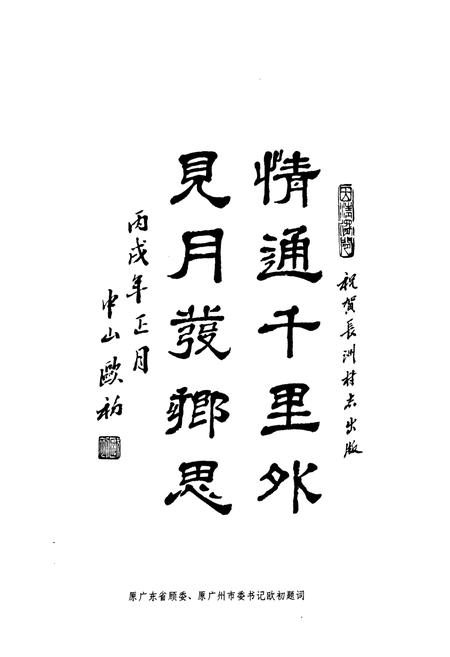 祝賀長洲村志出版
情通千里外
見月發鄉思
丙戌年正月
中山歐初
原广东省顾委、原广州市委书记欧初题词